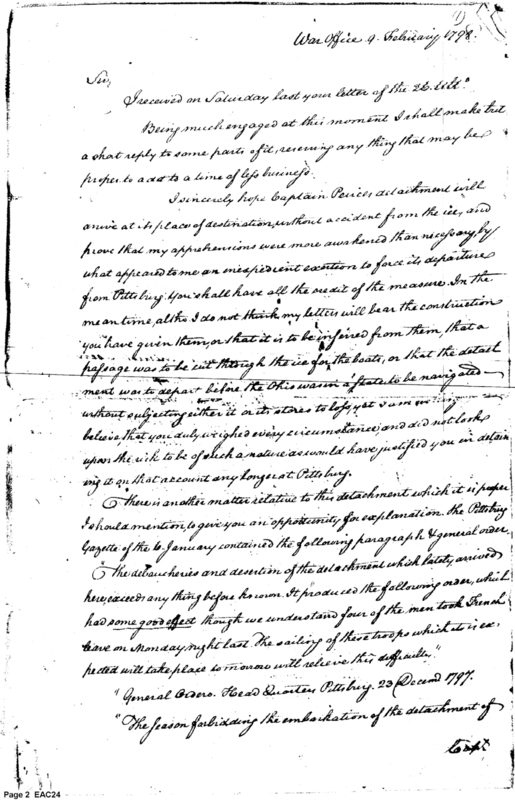 War Office 9. February 1798.
Sir,
I received on Saturday last your letter of the 26. Ulto.
Being much engaged at this moment I shall make but
a short reply to some parts of it, reserving any thing that may be
proper to add to a time of less business.
I sincerely hope Captain Peirces detachment will
arrive at its place of destination, without accident from the ice, and
prove that my apprehensions were more awakened than necessary, by
what appeared to me an inexpedient exertion to force its departure
from Pittsburg. You shall have all the credit of the measure. In the
mean time, altho I do not think my letters will bear the construction
you have given them, or that it is to be inferred from them, that a
passage was to be cut through the ice for the boats, or that the detach
ment was to depart before the Ohio was in a state to be navigated
without subjecting either it or its stores to loss, yet I am
believe that you duly weighed every circumstance, and did not look
upon the risk to be of such a nature as would have justified you in detain
ing it on that account any longer at Pittsburg.
There is another matter relative to this detachment which it is proper
I should mention, to give you an opportunity for explanation. The Pittsburg
Gazette of the 6 January contained the following paragraph & general order.
The debaucheries and desertion of the detachment which lately arrived
here, exceeds any thing before known. It produced the following order, which
had some good effect though we understand four of the men took French
leave on Monday night last. The sailing of these troops which it is ex-
pected will take place tomorrow will relieve this difficulty."
"General Orders. Head Quarters Pittsburg. 23 Decemr 1797.
"The Season forbidding the embarkation of the detachment of
Capt
Page 2 EAC24